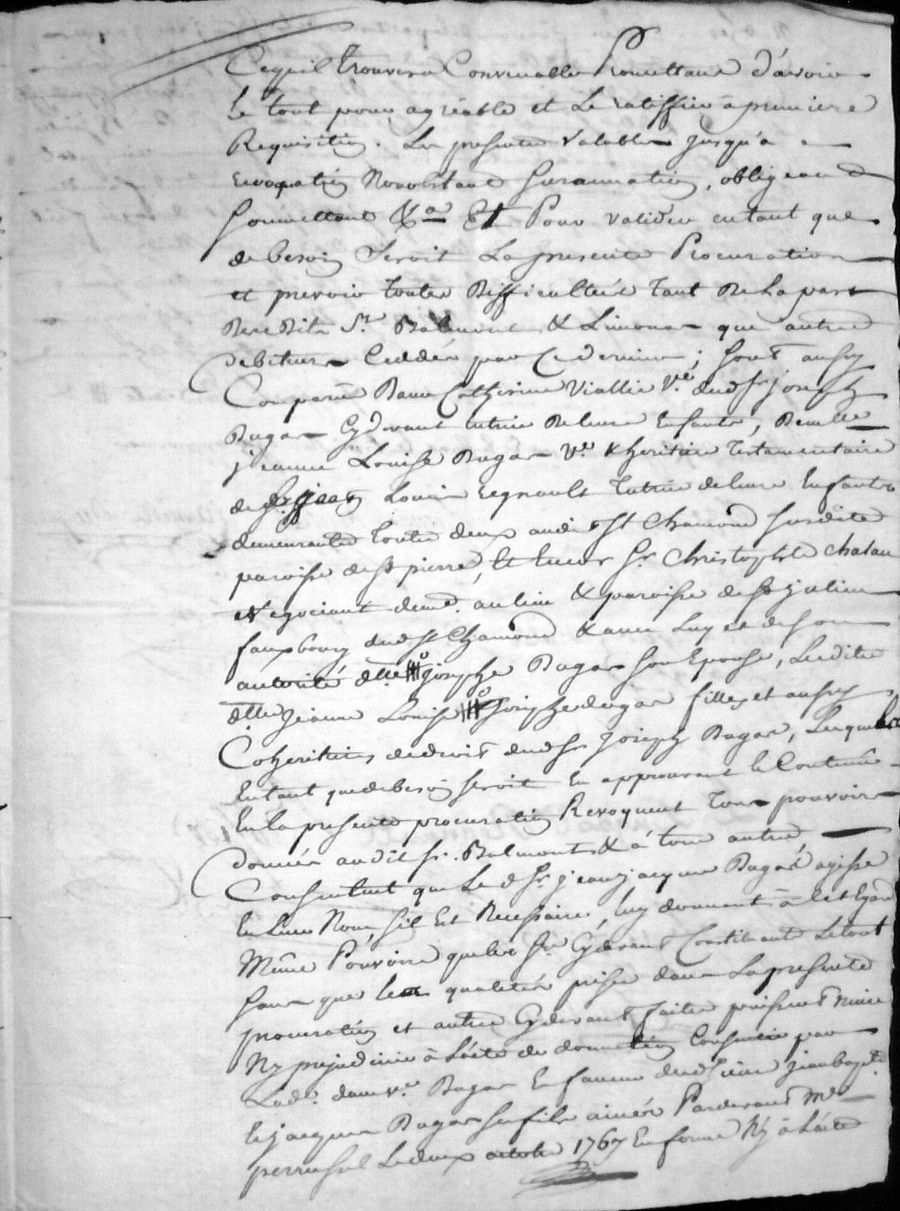 Cequil trouvera Convenable Promettant d'avoir
le tout pour agréable et Le ratiffier à premiere
Requisition. Les presentes valables jusqu'à
revocation Nonobstant surannation, obligeant
soumettant &a Et Pour valider en tant que
de besoin Seroit La presente Procuration
et prevoir toutes difficultés tant de la part
desdits Srs Balmont & Limousin que autres
debiteurs Ceddés par ce dernier; sont aussy
Comparûes Dame Catherine Viallie Ve dudt Sr Joseph
Dugas Cydevant tutrice de leurs Enfants, Demlle
jeanne Louise Dugas Ve & heritiere testamentaire
de Sr jean Louis regnault Tutrice de leurs Enfants
demeurantes toutes deux audit St Chamond susdite
paroisse de St pierre, Et encor Sr Christophle chalan
Negociant demt. au lieu & paroisse de St julien
fauxbourg dudt St Chamond & avec Luy et de son
autorité dlle josephe Dugas son Epouse, Lesdites
dlles jeanne Louise josephe dugas filles et aussy
Coheritieres de droit dudt Sr Joseph Dugas, Lesquelles
En tant que de besoin seroit En approuvant le Contenu
En la presente procuration Revoquent Tous pouvoirs
donnés audit Sr. Balmont & à tous autres
Consentent que Le dt Sr jean jacques Dugas agisse
En Leur Nom, s'il Est Necessaire, luy donnant à cet Egard
Même Pouvoir que les Srs Cydevant Constituants Le tout
sans que les qualités prises dans La presente
procuration et autres Cydevant faites puissent nuire
Ny prejudicier à L'acte de donnation Consentie par
Lade. dame ve. Dugas En faveur dud Sieur jean bapte.
& jacques Dugas ses fils ainés Pardevant Me
perrussel Le deux octobre 1767 En forme Ny à L'acte